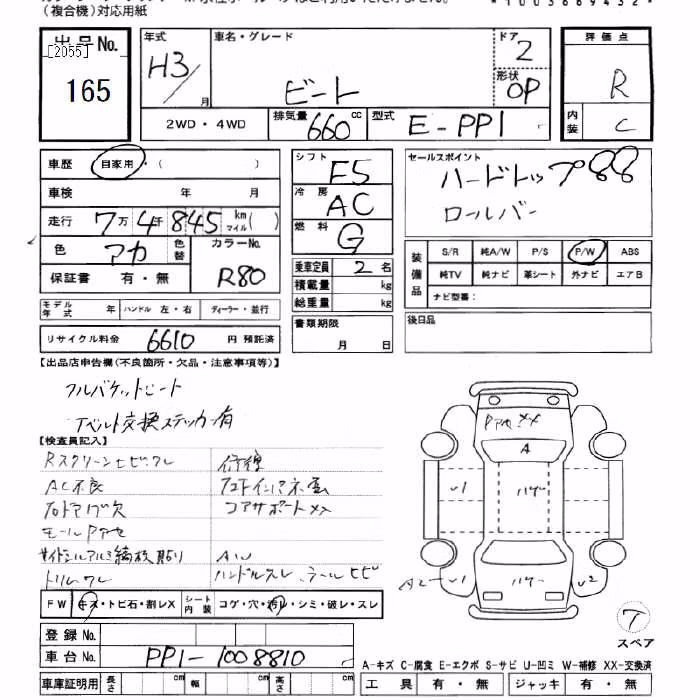 (複合機)対応用紙
出品No. [2055] 165
年式 H3/ 月
車名・グレード ビート
ドア 2
形状 OP
評価点 R
内装 C
2WD・4WD 排気量 660 cc 型式 E-PP1
車歴 自家用・( )
車検 年 月
走行 7万4千845 km マイル( )
色 アカ 色替 カラーNo. R80
保証書 有・無
シフト F5
冷房 AC
燃料 G
乗車定員 2 名
積載量 kg
総重量 kg
セールスポイント
ハードトップ
ロールバー
装備品 S/R 純A/W P/S P/W ABS
純TV 純ナビ 革シート 外ナビ エアB
ナビ型番:
モデル年式 年 ハンドル 左・右 ディーラー・並行
リサイクル料金 6610 円 預託済
書類期限 月 日
後日品
【出品店申告欄(不良箇所・欠品・注意事項等)】
フルバケットシート
Tベルト交換ステッカー有
【検査員記入】
Rスクリーンヒビ、ワレ
AC不良
コアサポートXX
モールPアセ
A/W
トリムワレ
ハンドルスレ
FW キズ・トビ石・割レX シート内装 コゲ・穴・汚レ・シミ・破レ・スレ
登録No.
車台No. PP1-1008810
車庫証明用 長さ cm 幅 cm 高さ cm
Pアセ XX
A
A2
スペア
A-キズ C-腐食 E-エクボ S-サビ U-凹ミ W-補修 XX-交換済
工具 有・無 ジャッキ 有・無